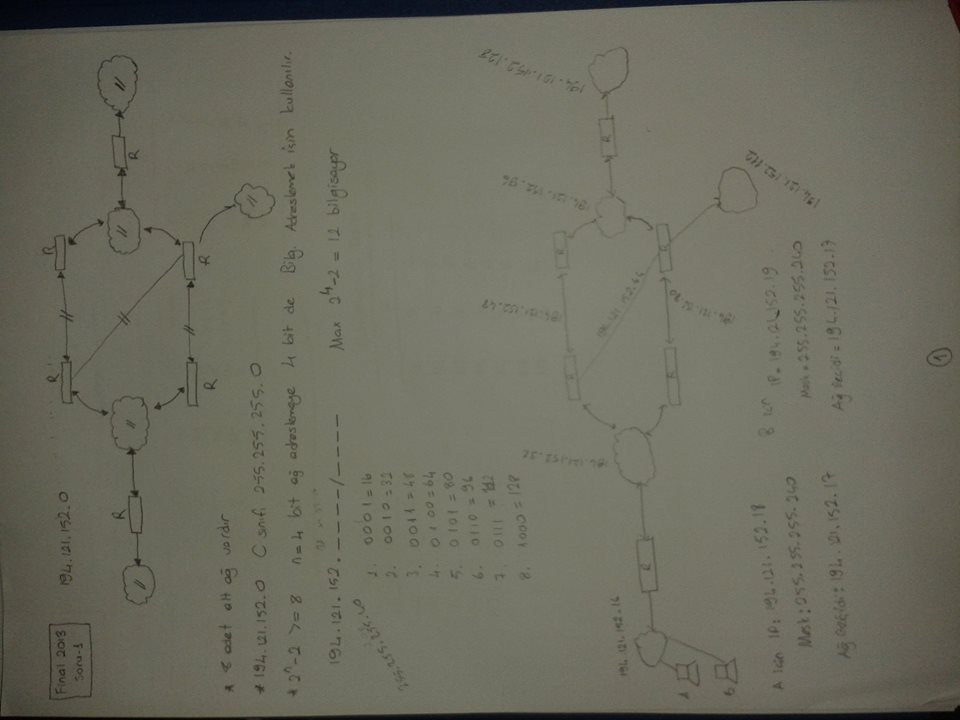 Final 2013
Soru-1
194.121.152.0
R
R
R
R
R
R
* 8 adet alt ağ vardır
* 194.121.152.0 C sınıfı 255.255.255.0
* 2^n-2 >= 8 n=4 bit ağ adreslemeye 4 bit de Bilg. Adreslemek için kullanılır.
194.121.152. _ _ _ _ / _ _ _ _ Max 2^4-2 = 12 bilgisayar
1. 0001=16
2. 0010=32
3. 0011=48
4. 0100=64
5. 0101=80
6. 0110=96
7. 0111=112
8. 1000=128
194.121.152.16
194.121.152.32
194.121.152.48
194.121.152.64
194.121.152.80
194.121.152.96
194.121.152.128
194.121.152.112
R
R
R
R
R
R
A
B
A için IP: 194.121.152.18
Mask: 255.255.255.240
Ağ Geçidi: 194.121.152.17
B için IP= 194.121.152.19
Mask= 255.255.255.240
Ağ Gecidi= 194.121.152.17
1